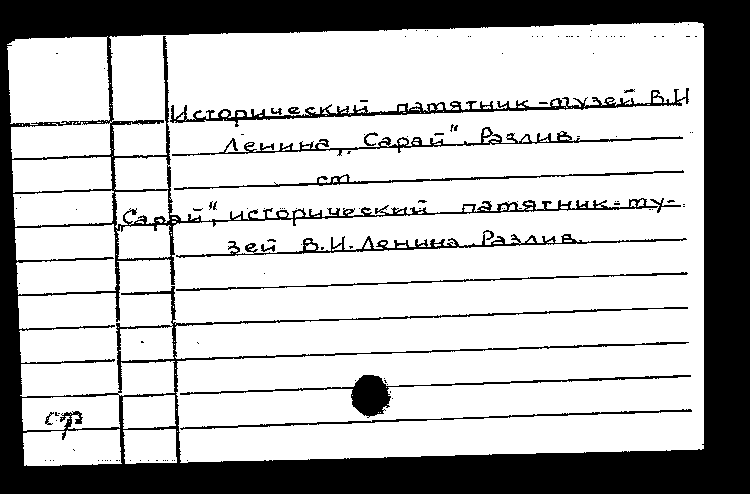 Исторический памятник-музей В.И
Ленина „Сарай". Разлив.
см
„Сарай", исторический памятник-му-
зей В.И.Ленина. Разлив.
ср